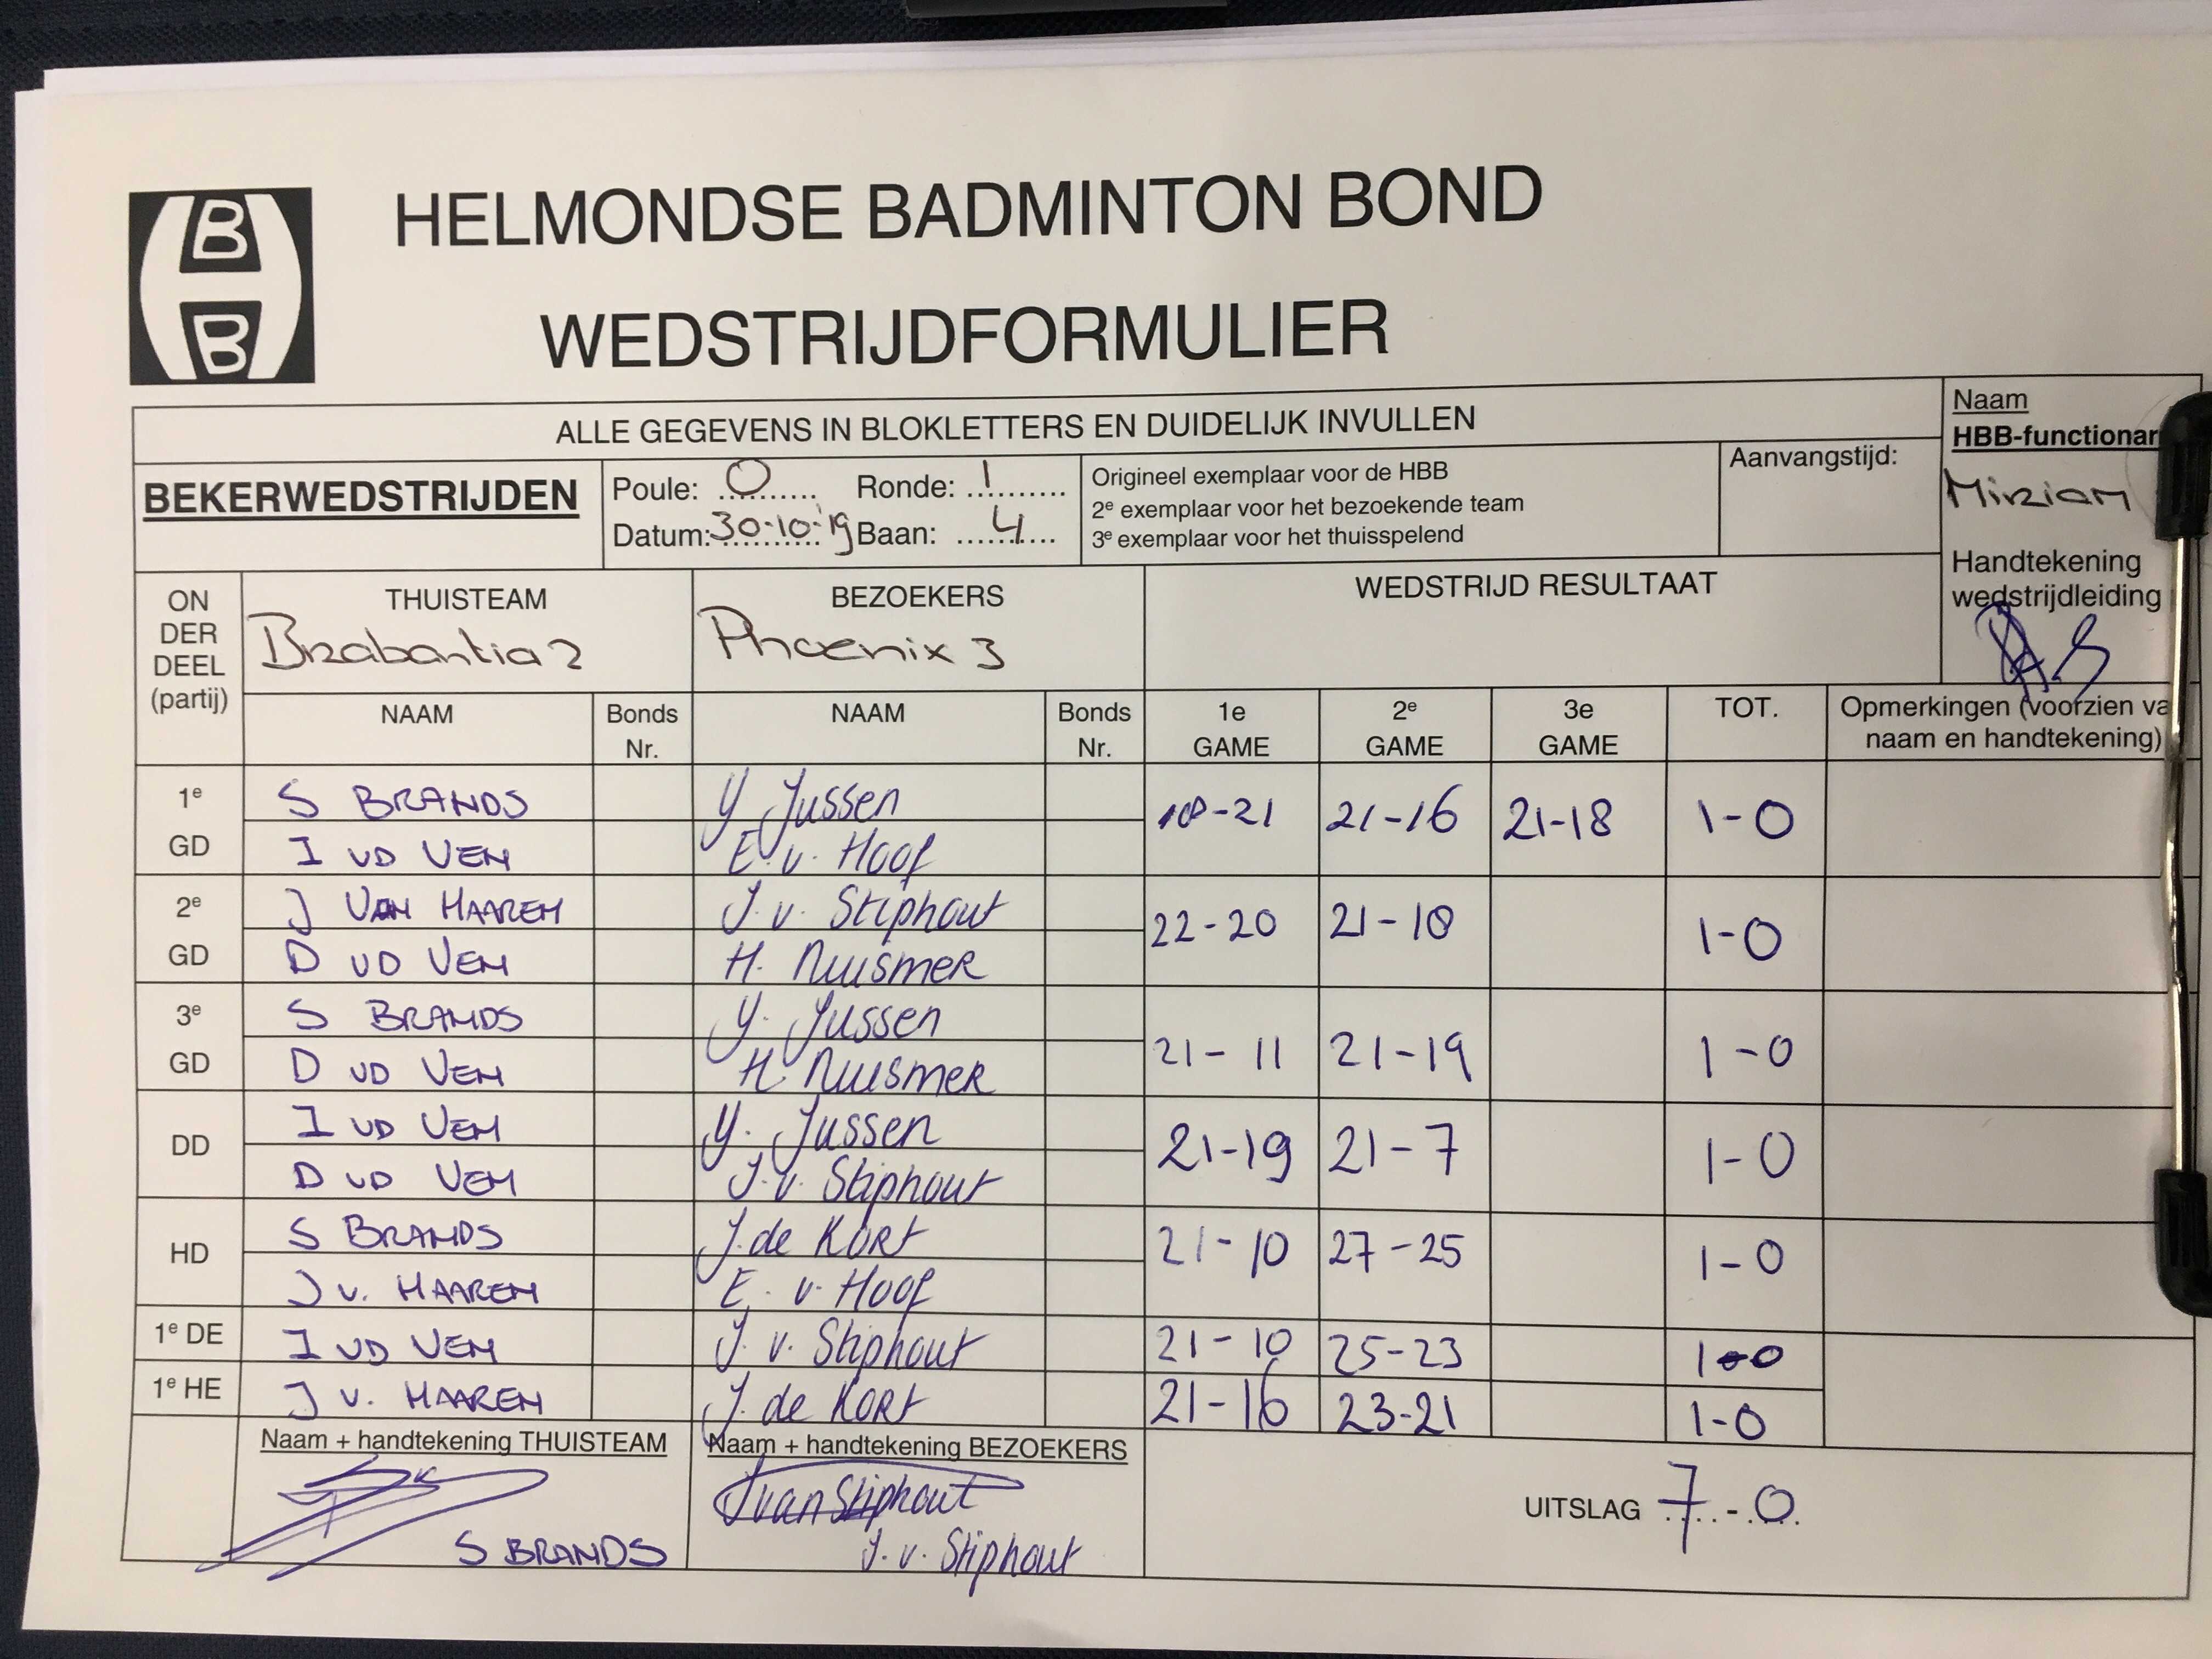 HBB
HELMONDSE BADMINTON BOND
WEDSTRIJDFORMULIER
ALLE GEGEVENS IN BLOKLETTERS EN DUIDELIJK INVULLEN
Naam
HBB-functionar
Miriam
BEKERWEDSTRIJDEN
Poule: O Ronde: 1
Datum: 30-10-'19 Baan: 4
Origineel exemplaar voor de HBB
2e exemplaar voor het bezoekende team
3e exemplaar voor het thuisspelend
Aanvangstijd:
Handtekening
wedstrijdleiding
ON
DER
DEEL
(partij)
THUISTEAM
Brabantia 2
BEZOEKERS
Phoenix 3
WEDSTRIJD RESULTAAT
NAAM Bonds Nr. NAAM Bonds Nr. 1e GAME 2e GAME 3e GAME TOT. Opmerkingen (voorzien va
naam en handtekening)
1e S BRANDS Y Jussen -21 21-16 21-18 1-0
GD I VD VEN E. v. Hoof
2e J VAN HAAREN J. v. Stiphout 22-20 21-18 1-0
GD D VD VEN H. Nuismer
3e S BRANDS Y. Jussen 21-11 21-19 1-0
GD D VD VEN H. Nuismer
DD I VD VEN Y. Jussen 21-19 21-7 1-0
D VD VEN J. v. Stiphout
HD S BRANDS J. de Kort 21-10 27-25 1-0
J V. HAAREN E. v. Hoof
1e DE I VD VEN J. v. Stiphout 21-10 25-23 1-0
1e HE J V. HAAREN J. de Kort 21-16 23-21 1-0
Naam + handtekening THUISTEAM
S BRANDS
Naam + handtekening BEZOEKERS
JvanStiphout
J. v. Stiphout
UITSLAG 7-0